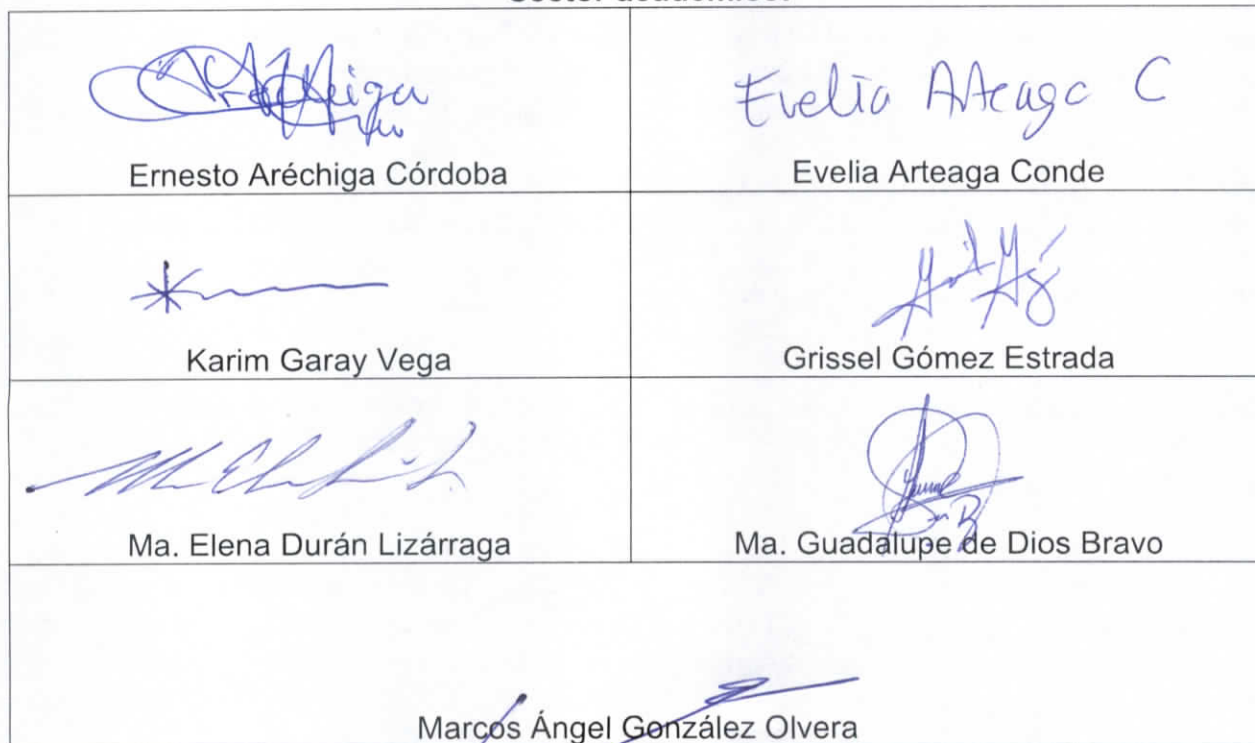 Ernesto Aréchiga Córdoba
Evelia Arteaga C
Evelia Arteaga Conde
Karim Garay Vega
Grissel Gómez Estrada
Ma. Elena Durán Lizárraga
Ma. Guadalupe de Dios Bravo
Marcos Ángel González Olvera